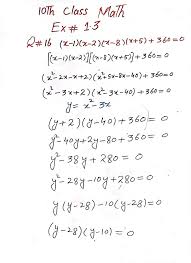 10th Class Math
Ex # 1.3
Q#16 (x-1)(x-2)(x-8)(x+5)+360=0
[(x-1)(x-2)][(x-8)(x+5)]+360=0
(x²-2x-x+2)(x²+5x-8x-40)+360=0
(x²-3x+2)(x²-3x-40)+360=0
y=x²-3x
(y+2)(y-40)+360=0
y²-40y+2y-80+360=0
y²-38y+280=0
y²-28y-10y+280=0
y(y-28)-10(y-28)=0
(y-28)(y-10)=0